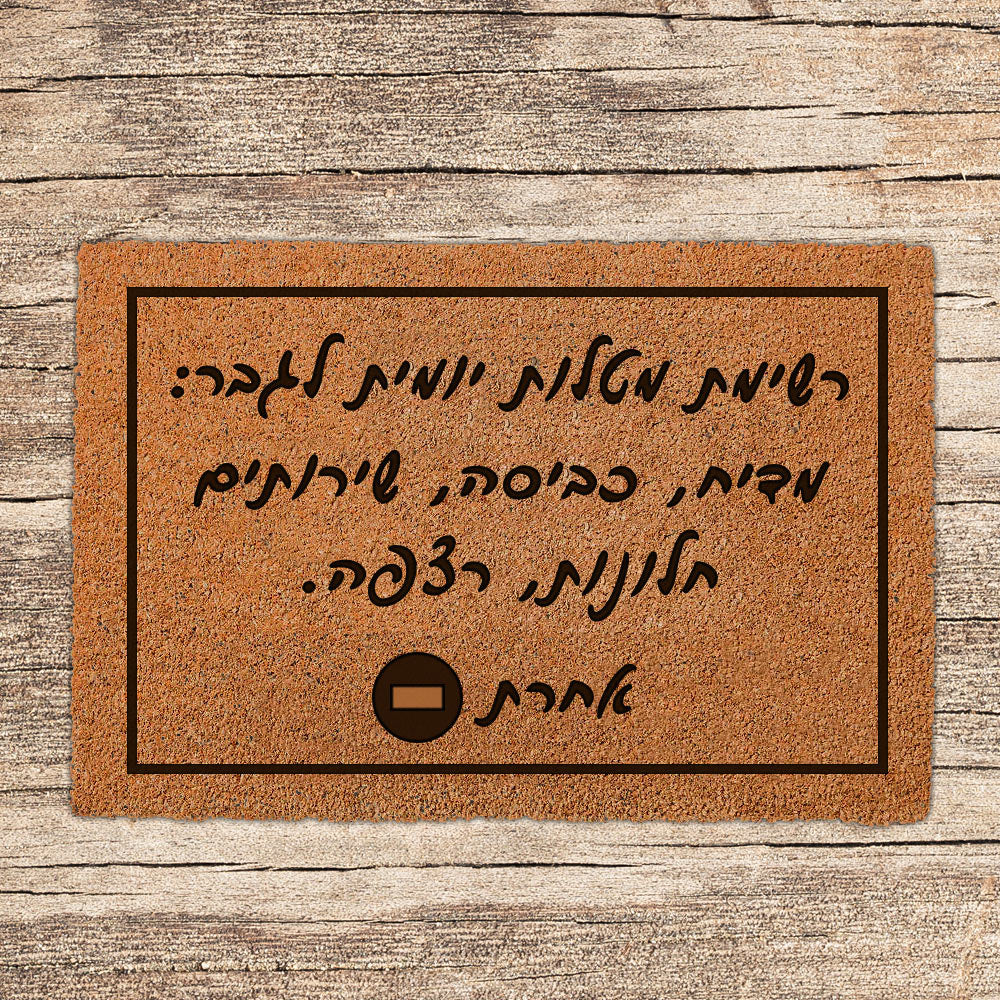 רשימת מטלות יומית לגבר:
מדיח, כביסה, שירותים
חלונות, רצפה.
אחרת